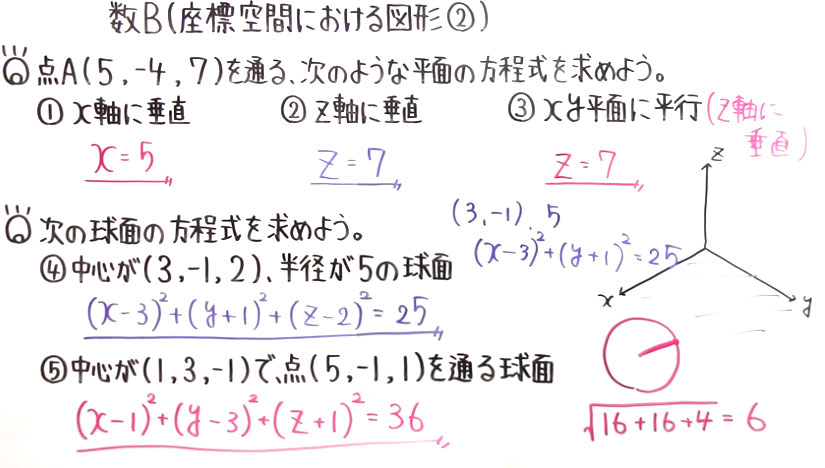 数B(座標空間における図形②)
Q 点A(5,-4,7)を通る、次のような平面の方程式を求めよう。
① x軸に垂直 ② z軸に垂直 ③ xy平面に平行(z軸に垂直)
x=5 z=7 z=7
z
x
y
Q 次の球面の方程式を求めよう。
(3,-1). 5
(x-3)²+(y+1)²=25
④中心が(3,-1,2)、半径が5の球面
(x-3)²+(y+1)²+(z-2)²=25
⑤中心が(1,3,-1)で、点(5,-1,1)を通る球面
(x-1)²+(y-3)²+(z+1)²=36
√16+16+4=6